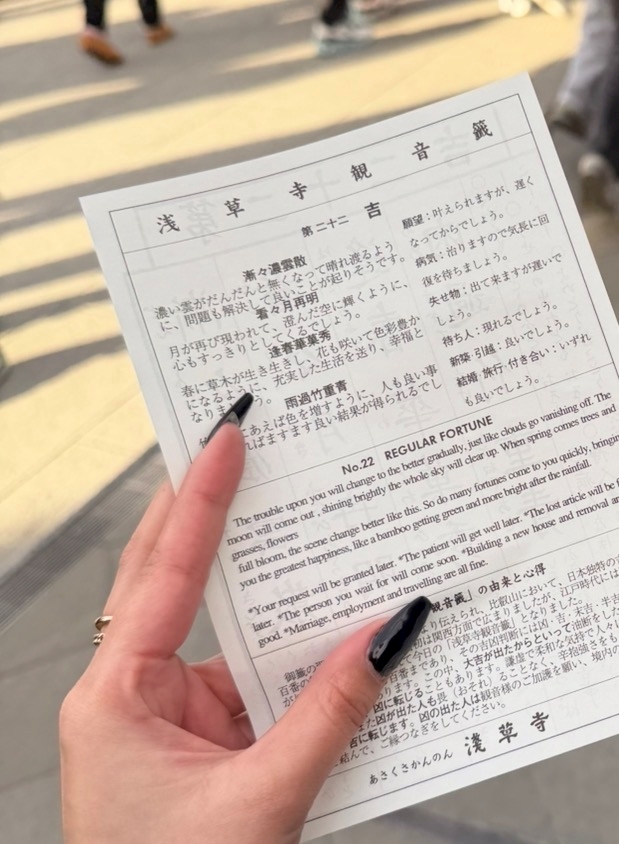 浅草寺観音籤
第二十二 吉
漸々濃雲散
濃い雲がだんだんと無くなって晴れ渡るよう
に、問題も解決して良いことが起りそうです。
看々月再明
月が再び現われて、澄んだ空に輝くように、
心もすっきりとしてくるでしょう。
逢春華菓秀
春に草木が生き生きし、花も咲いて色彩豊か
になるように、充実した生活を送り、幸福と
なりましょう。
雨過竹重青
にあえば色を増すように、人も良い事
ればますます良い結果が得られるでし
願望：叶えられますが、遅く
なってからでしょう。
病気：治りますので気長に回
復を待ちましょう。
失せ物：出て来ますが遅いで
しょう。
待ち人：現れるでしょう。
新築・引越：良いでしょう。
結婚・旅行・付き合い：いずれ
も良いでしょう。
No.22 REGULAR FORTUNE
The trouble upon you will change to the better gradually, just like clouds go vanishing off. The
moon will come out , shining brightly the whole sky will clear up. When spring comes trees and
grasses, flowers
full bloom, the scene change better like this. So do many fortunes come to you quickly, bringing
you the greatest happiness, like a bamboo getting green and more bright after the rainfall.
*Your request will be granted later. *The patient will get well later. *The lost article will be
later. *The person you wait for will come soon. *Building a new house and removal are
good. *Marriage, employment and travelling are all fine.
観音籤」の由来と心得
り伝えられ、比叡山において、日本独特の
は関西方面で広まりましたが、江戸時代には
今日の「浅草寺観音籤」となりました。
百番まであり、その吉凶判断には凶・吉・末吉・半吉
ります。この中、大吉が出たからといって油断をした
凶に転じることもあります。謙虚で柔和な気持で人々
た凶が出た人も畏（おそ）れることなく、辛抱強さをも
吉に転じます。凶の出た人は観音様のご加護を願い、境内の
結んで、ご縁つなぎをしてください。
あさくさかんのん 浅草寺